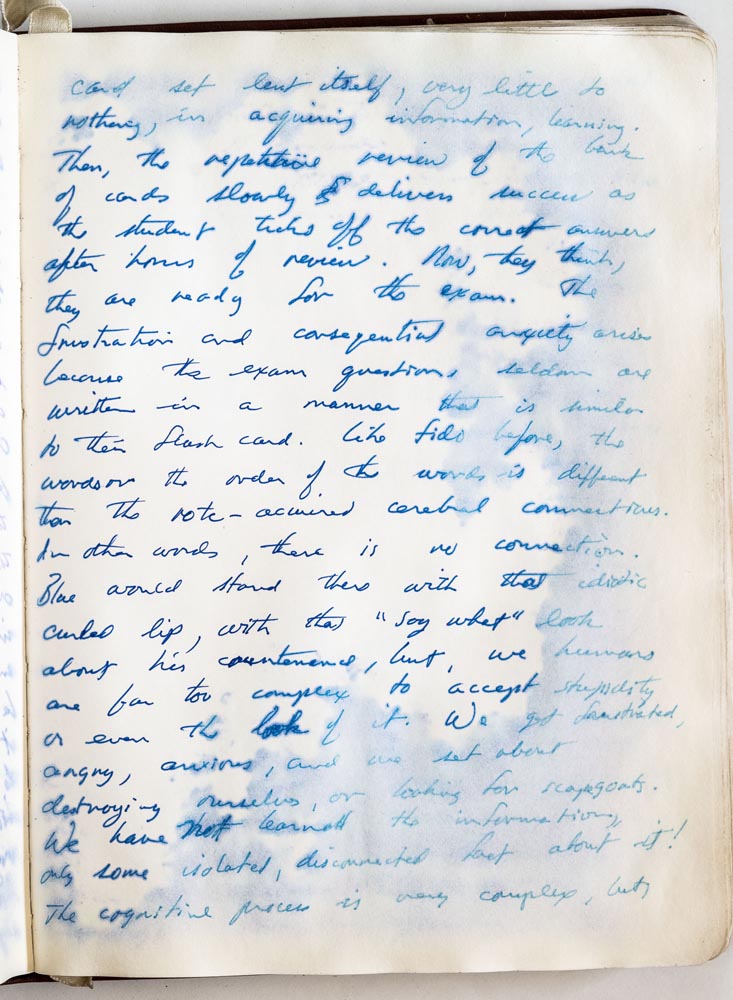 card set lent itself, very little to
nothing, in acquiring information, learning.
Then, the repetitive review of the bank
of cards slowly & delivers success as
the student ticks off the correct answers
after hours of review. Now, they think,
they are ready for the exam. The
frustration and consequential anxiety arises
because the exam questions seldom are
written in a manner that is similar
to their flash card. Like Fido before, the
words or the order of the words is different
than the rote-acquired cerebral connections.
In other words, there is no connection.
Blue would stand there with that idiotic
curled lip, with that "say what" look
about his countenance, but, we humans
are far too complex to accept stupidity
or even the look of it. We get frustrated,
angry, anxious, and are set about
destroying ourselves, or looking for scapegoats.
We have not learned the information,
only some isolated, disconnected fact about it!
The cognitive process is very complex, but